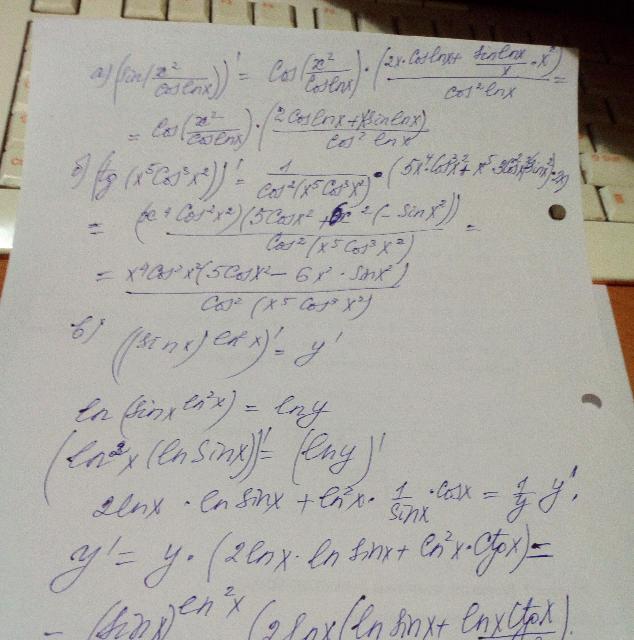 а) (sin(x²/cos lnx))' = Cos(x²/cos lnx) · (2x·Coslnx + sinlnx/x · x²)/cos² lnx =
= Cos(x²/cos lnx) · (2Coslnx + x sinlnx)/cos² lnx
б) (tg (x⁵Cos³x²))' = 1/cos²(x⁵Cos³x²) ·
= (x⁴ Cos²x²)(5Cosx² + 6x²(-Sinx²))/Cos²(x⁵Cos³x²) =
= x⁴Cos²x²(5Cosx² - 6x² · sinx²)/Cos² (x⁵ Cos³ x²)
в)
((sin x)^ln²x)' = y'
ln (sinx^ln²x) = lny
(ln²x (ln Sinx))' = (lny)'
2lnx · ln Sinx + ln²x · 1/Sinx · cosx = 1/y y'.
y' = y · (2lnx · ln Sinx + ln²x · Ctgx) =
= (Sinx)^ln²x (2lnx(ln Sinx + lnx Ctgx